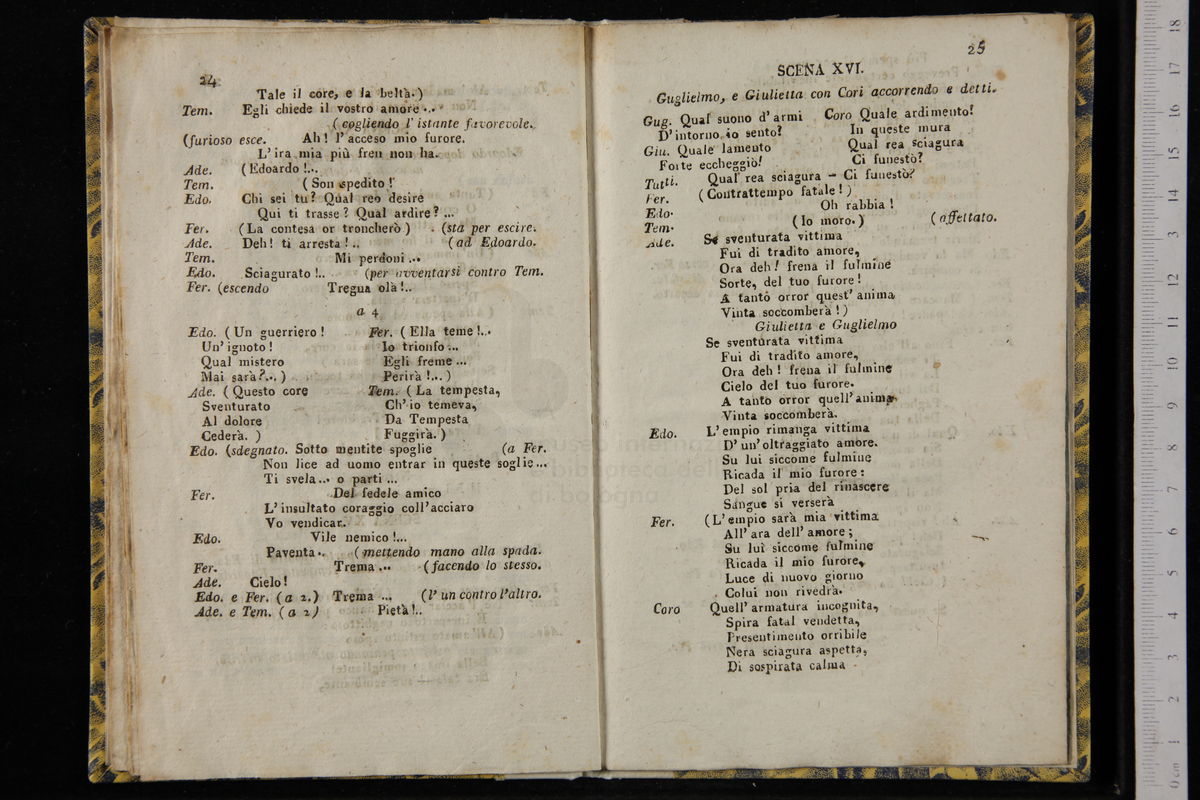 24
Tale il core, e la beltà.)
Tem. Egli chiede il vostro amore...
(cogliendo l' istante favorevole.
(furioso esce. Ah! l' acceso mio furore.
L' ira mia più fren non ha.
Ade. (Edoardo!..
Tem. (Son spedito!
Edo. Chi sei tu? Qual reo desire
Qui ti trasse? Qual ardire? ...
Fer. (La contesa or troncherò) (sta per escire.
Ade. Deh! ti arresta!.. (ad Edoardo.
Tem. Mi perdoni...
Edo. Sciagurato!.. (per avventarsi contro Tem.
Fer. (escendo Tregua olà!..
a 4
Edo. (Un guerriero!
Un' ignoto!
Qual mistero
Mai sarà?...)
Fer. (Ella teme!...
Io trionfo...
Egli freme...
Perirà!...)
Ade. (Questo core
Sventurato
Al dolore
Cederà. )
Tem. (La tempesta,
Ch' io temeva,
Da Tempesta
Fuggirà.)
Edo. (sdegnato. Sotto mentite spoglie (a Fer.
Non lice ad uomo entrar in queste soglie...
Ti svela... o parti...
Fer. Del fedele amico
L' insultato coraggio coll' acciaro
Vo vendicar.
Edo. Vile nemico!...
Paventa.. (mettendo mano alla spada.
Fer. Trema... (facendo lo stesso.
Ade. Cielo!
Edo. e Fer. (a 2.) Trema ... (l' un contro l'altro.
Ade. e Tem. (a 2) Pietà!..
25
SCENA XVI.
Guglielmo, e Giulietta con Cori accorrendo e detti.
Gug. Qual suono d' armi
D' intorno io sento?
Giu. Quale lamento
Forte eccheggiò!
Coro Quale ardimento!
In queste mura
Qual rea sciagura
Ci funestò?
Tutti. Qual rea sciagura - Ci funestò?
Fer. (Contrattempo fatale!)
Edo. Oh rabbia!
Tem. (Io moro.) (affettato.
Ade. Se sventurata vittima
Fui di tradito amore,
Ora deh! frena il fulmine
Sorte, del tuo furore!
A tanto orror quest' anima
Vinta soccomberà!)
Giulietta e Guglielmo
Se sventurata vittima
Fui di tradito amore,
Ora deh! frena il fulmine
Cielo del tuo furore.
A tanto orror quell' anima
Vinta soccomberà.
Edo. L' empio rimanga vittima
D' un' oltraggiato amore.
Su lui siccome fulmine
Ricada il mio furore:
Del sol pria del rinascere
Sangue si verserà
Fer. (L' empio sarà mia vittima
All' ara dell' amore;
Su lui siccome fulmine
Ricada il mio furore,
Luce di nuovo giorno
Colui non rivedrà.
Coro Quell' armatura incognita,
Spira fatal vendetta,
Presentimento orribile
Nera sciagura aspetta,
Di sospirata calma
museo internaz
biblioteca dell
di bologna
0 cm 1 2 3 4 5 6 7 8 9 10 11 12 13 14 15 16 17 18